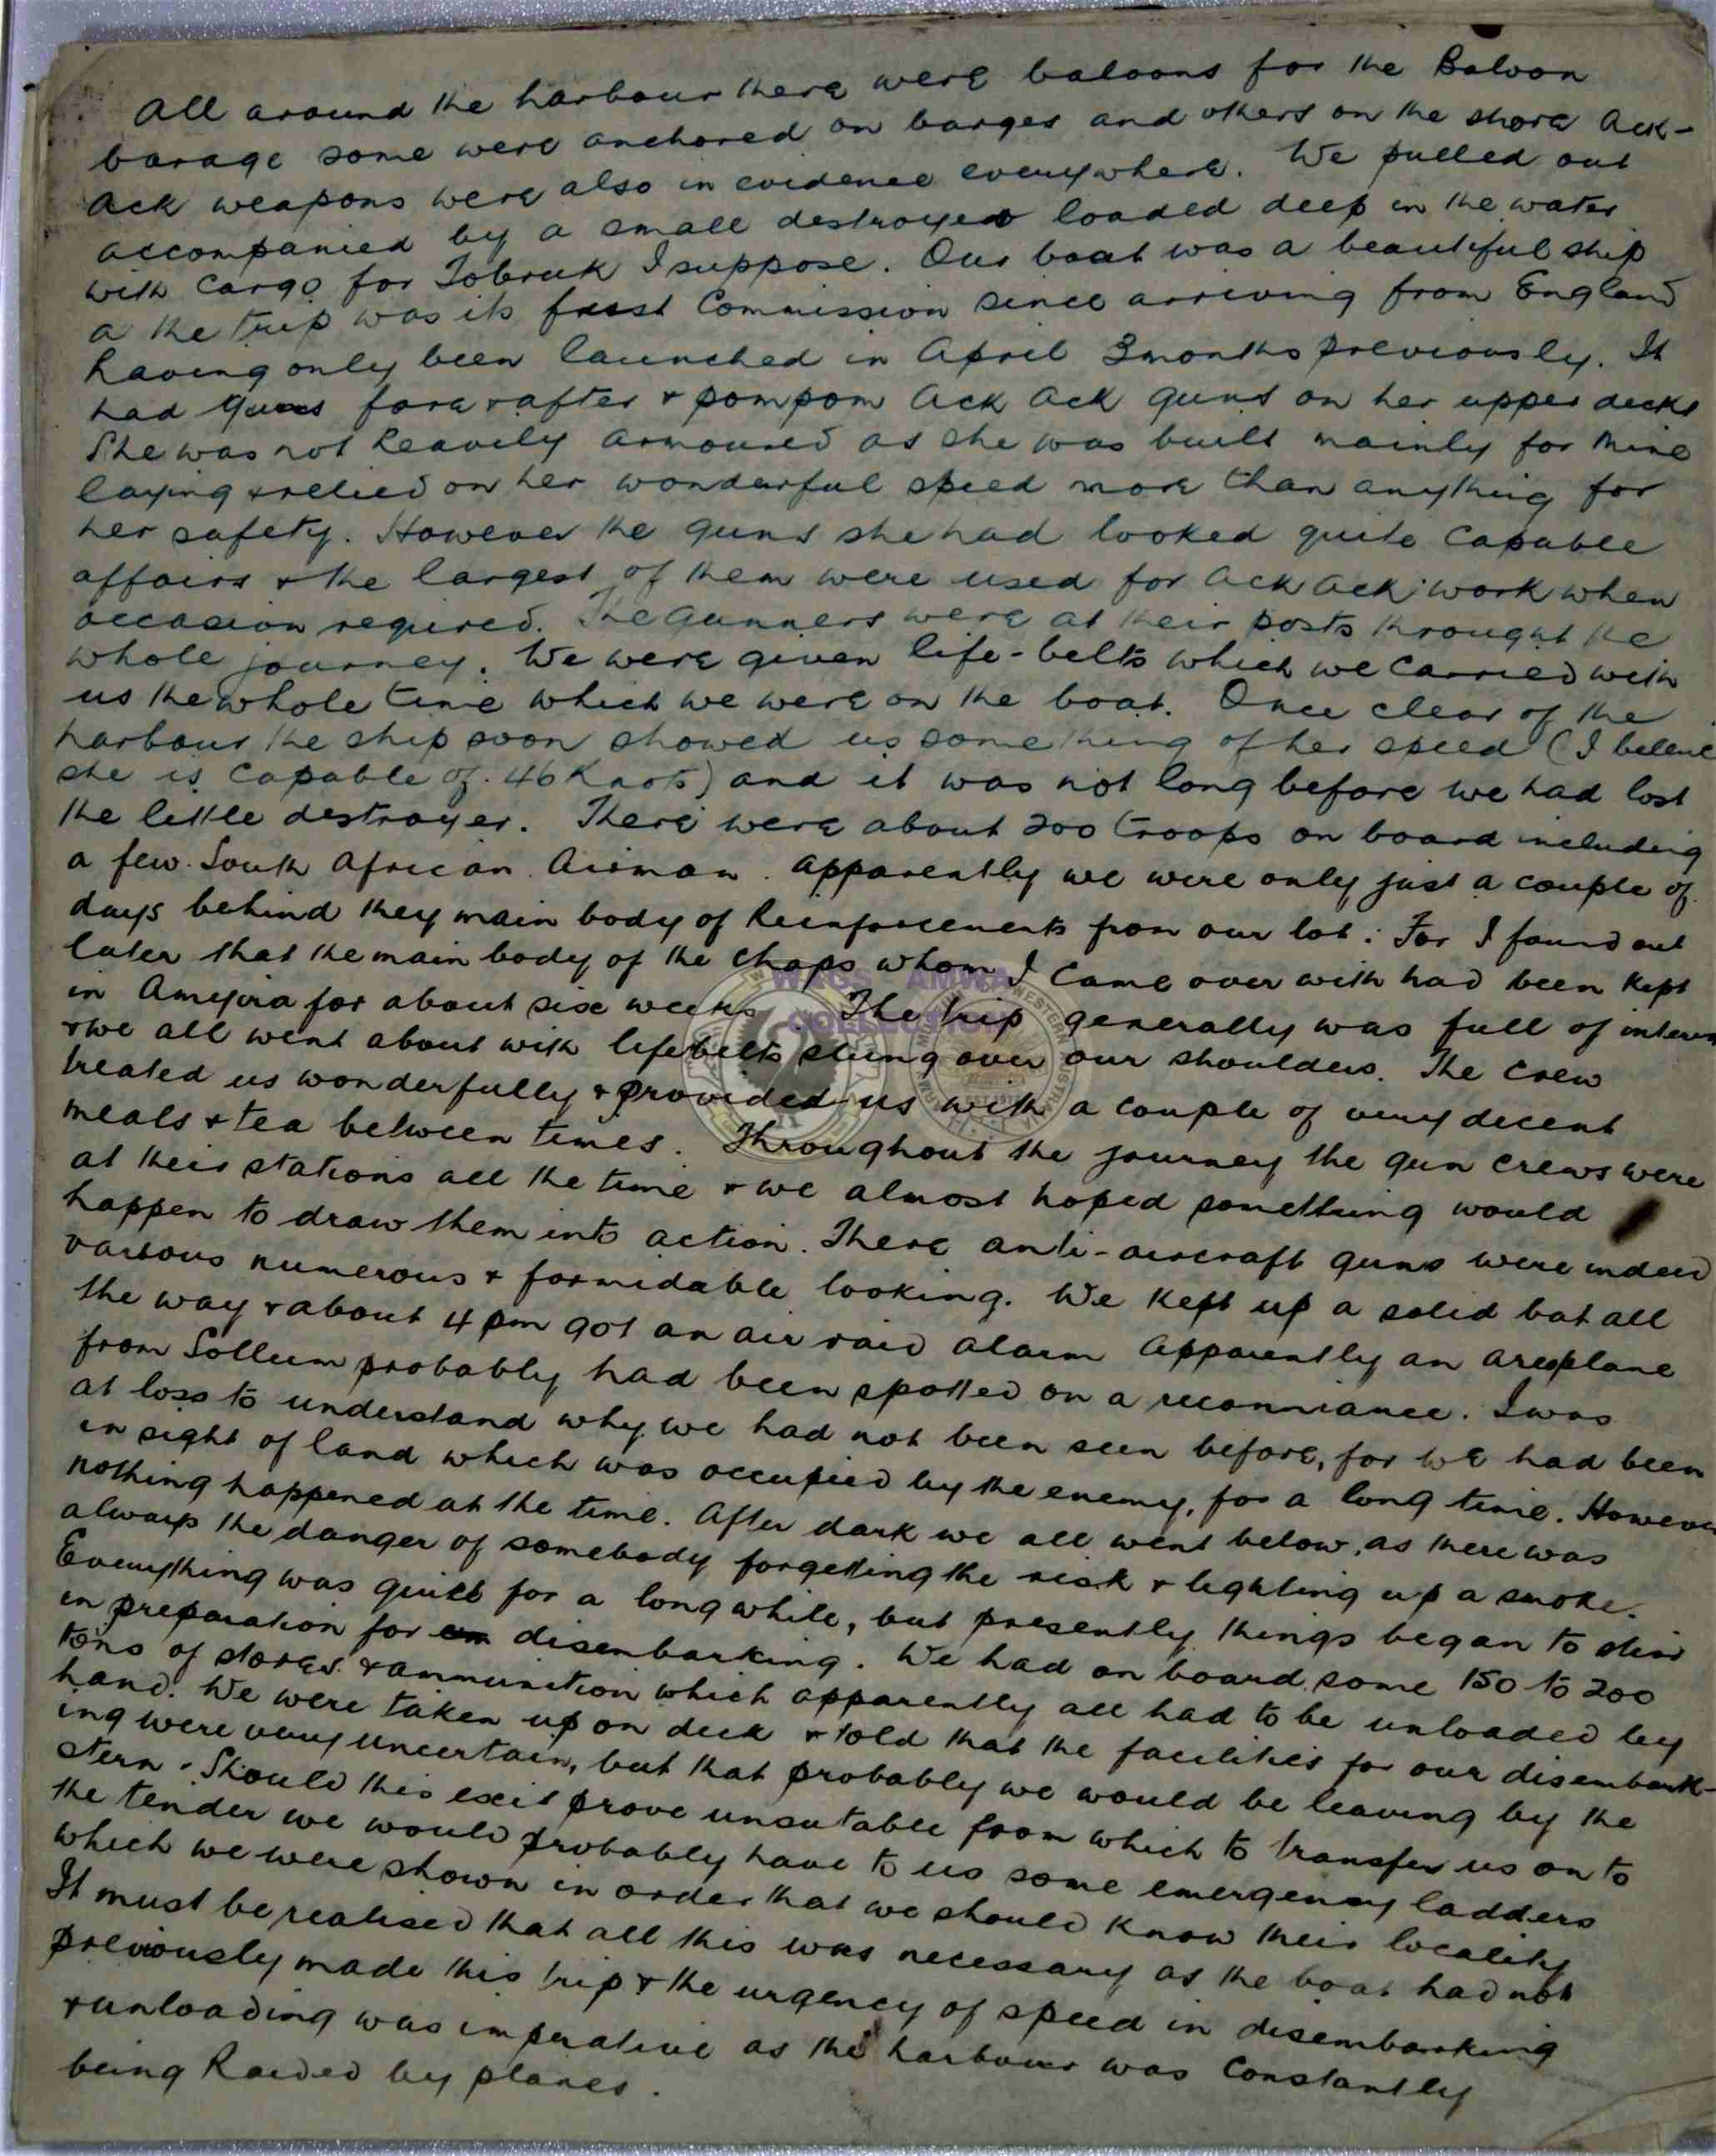 All around the harbour there were baloons for the Baloon
barage some were anchored on barges and others on the shore Ack-
Ack weapons were also in evidence everywhere. We pulled out
accompanied by a small destroyer loaded deep in the water
with Cargo for Tobruk I suppose. Our boat was a beautiful ship
a the trip was its first Commission since arriving from England
having only been launched in April 3 months previously. It
had guns fore & after & pompom Ack Ack guns on her upper decks
She was not heavily armoured as she was built mainly for mine
laying & relied on her wonderful speed more than anything for
her safety. However the guns she had looked quite capable
affairs & the largest of them were used for Ack Ack work when
occasion required. The Gunners were at their posts throught the
whole journey. We were given life-belts which we carried with
us the whole time which we were on the boat. Once clear of the
harbour the ship soon showed us something of her speed (I believe
she is capable of 46 Knots) and it was not long before we had lost
the little destroyer. There were about 200 troops on board including
a few South African Airman. Apparently we were only just a couple of
days behind they main body of Reinforcements from our lot. For I found out
later that the main body of the chaps whom I came over with had been kept
in Ameyira for about six weeks. The trip generally was full of interest
& we all went about with lifebelts slung over our shoulders. The crew
treated us wonderfully & provided us with a couple of very decent
meals & tea between times. Throughout the journey the gun crews were
at their stations all the time & we almost hoped something would
happen to draw them into action. There anti-aircraft guns were indeed
various numerous & formidable looking. We kept up a solid bat all
the way & about 4 pm got an air raid alarm Apparently an areoplane
from Sollum probably had been spotted on a reconniance. I was
at loss to understand why we had not been seen before, for we had been
in sight of land which was occupied by the enemy, for a long time. However
nothing happened at the time. After dark we all went below, as there was
always the danger of somebody forgetting the risk & lighting up a smoke.
Everything was quiet for a long while, but presently things began to stir
in preparation for disembarking. We had on board some 150 to 200
tons of stores & ammunition which apparently all had to be unloaded by
hand. We were taken up on deck & told that the facilities for our disembark-
ing were very uncertain, but that probably we would be leaving by the
stern. Should this exit prove unsutable from which to transfer us on to
the tender we would probably have to us some emergency ladders
which we were shown in order that we should know their locality
It must be realised that all this was necessary as the boat had not
previously made this trip & the urgency of speed in disembarking
& unloading was imperative as the harbour was constantly
being Raided by planes.